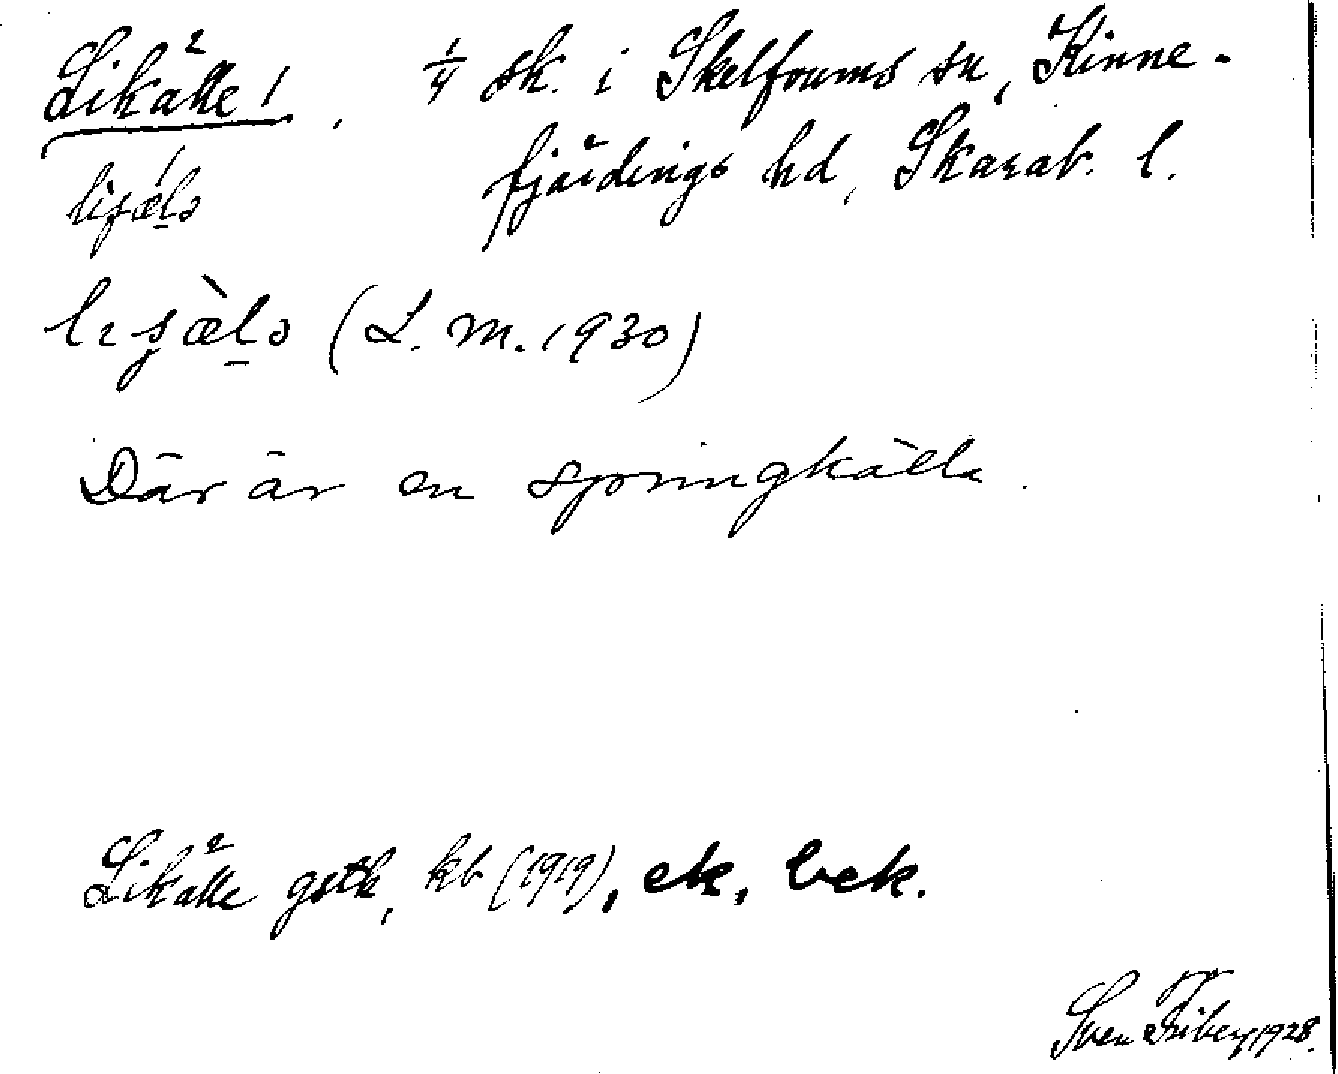 Likälle!, 1/4 sk. i Skelfvums sn, Kinne-
fjärdings hd, Skarab. l.
(L. M. 1930)
Där är en springkälla.
Likälle gstk, kb (1919), ek, bek.
Sven Friberg 1928.